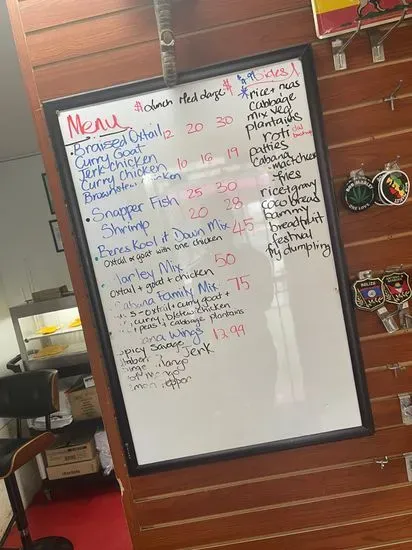 Menu $ Lunch Med Large $
Braised Oxtail 12 20 30
Curry Goat
Jerk Chicken 10 16 19
Curry Chicken
Snapper Fish 25 30
Shrimp 20 28
Beres Kool it Down Mix 45
Oxtail or goat with one chicken
Marley Mix 50
Oxtail + goat + chicken
Family Mix 75
oxtail + curry goat +
curry, b/stew chicken
peas + cabbage plantains
Wings 13.99
Spicy Savage
Jerk
Mango
Lemon Pepper
Sides
rice + peas
cabbage
mix veg
plantains
roti
patties
cabana
mac + cheese
fries
rice + gravy
coco bread
bammy
breadfruit
festival
fry dumpling
BELIZE